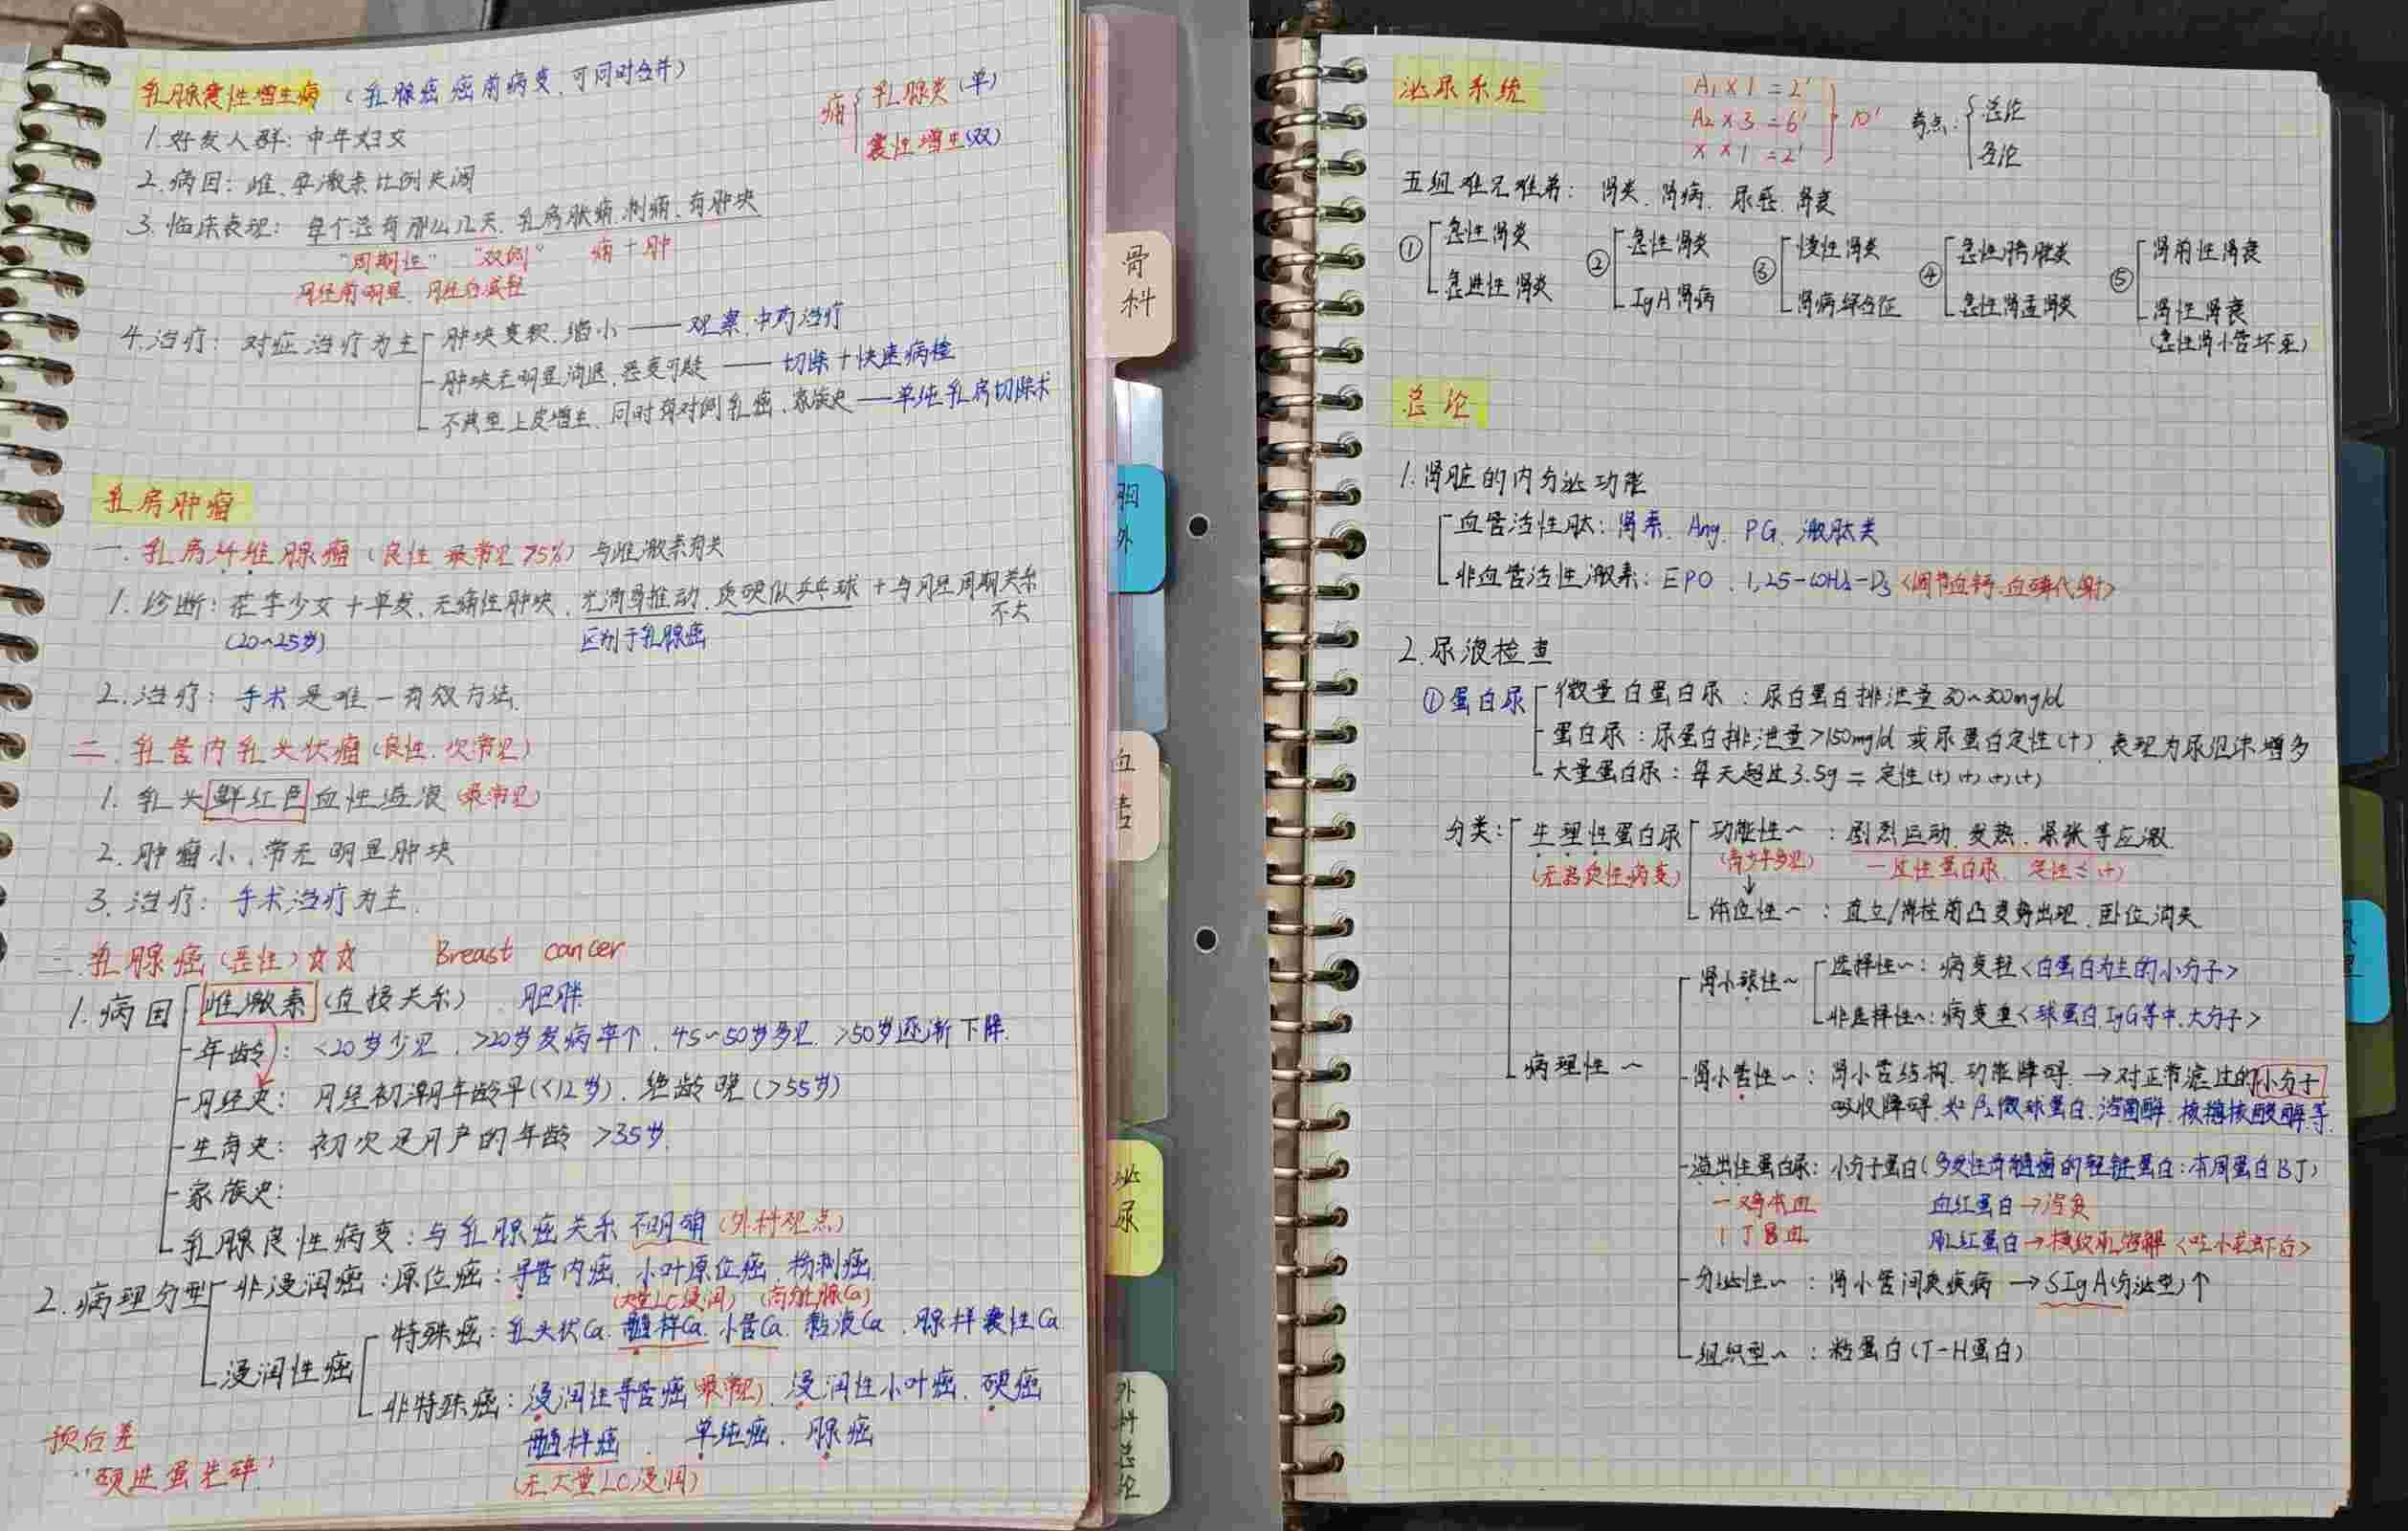 乳腺囊性增生病（乳腺癌癌前病变，可同时合并）
痛 乳腺炎（单）
囊性增生（双）
1. 好发人群：中年妇女
2. 病因：雌、孕激素比例失调
3. 临床表现：每个月总有那么几天，乳房胀痛、刺痛，有肿块
"周期性" "双侧" 痛＋肿
月经前明显，月经后减轻
4. 治疗：对症治疗为主
肿块变软、缩小——观察，中药治疗
肿块无明显消退，恶变可疑——切除＋快速病检
不典型上皮增生，同时有对侧乳癌、家族史——单纯乳房切除术
乳房肿瘤
一. 乳房纤维腺瘤（良性 最常见 75%）与雌激素有关
1. 诊断：花季少女＋单发，无痛性肿块，光滑易推动，质硬似乒乓球＋与月经周期关系不大
（20~25岁） 区别于乳腺癌
2. 治疗：手术是唯一有效方法.
二. 乳管内乳头状瘤（良性，次常见）
1. 乳头鲜红色血性溢液（最常见）
2. 肿瘤小，常无明显肿块
3. 治疗：手术治疗为主.
三. 乳腺癌（恶性）☆☆ Breast cancer
1. 病因 雌激素（直接关系） 肥胖
年龄：<20岁少见，>20岁发病率↑，45~50岁多见，>50岁逐渐下降.
月经史：月经初潮年龄早（<12岁），绝龄晚（>55岁）
生育史：初次足月产的年龄 >35岁.
家族史：
乳腺良性病变：与乳腺癌关系不明确（外科观点）
2. 病理分型 非浸润癌：原位癌：导管内癌、小叶原位癌、粉刺癌
（大量LC浸润）（高分化腺Ca）
浸润性癌 特殊癌：乳头状Ca、髓样Ca、小管Ca、黏液Ca、腺样囊性Ca
非特殊癌：浸润性导管癌（最常见）、浸润性小叶癌、硬癌
髓样癌、单纯癌、腺癌
（无大量LC浸润）
预后差
"硬进蛋先碎"
骨科
胸外
血
泌尿
外科总论
泌尿系统
A1×1=2'
A2×3=6'
X×1=2'
10'
考点：总论
各论
五组难兄难弟：肾炎、肾病、尿感、肾衰
① 急性肾炎 ② 急性肾炎 ③ 慢性肾炎 ④ 急性膀胱炎 ⑤ 肾前性肾衰
急进性肾炎 IgA肾病 肾病综合征 急性肾盂肾炎 肾性肾衰
（急性肾小管坏死）
总论
1. 肾脏的内分泌功能
血管活性肽：肾素、Ang、PG、激肽类
非血管活性激素：EPO、1,25-(OH)2-D3<调节血钙、血磷代谢>
2. 尿液检查
①蛋白尿 微量白蛋白尿：尿白蛋白排泄量30~300mg/d
蛋白尿：尿蛋白排泄量>150mg/d 或尿蛋白定性(+) 表现为尿泡沫增多
大量蛋白尿：每天超过3.5g = 定性(+)(+)(+)(+)
分类：生理性蛋白尿 功能性~：剧烈运动、发热、紧张等应激.
（无器质性病变）（青少年多见） 一过性蛋白尿，定性≤(+)
体位性~：直立/脊柱前凸姿势出现，卧位消失
病理性~
肾小球性~ 选择性~：病变轻<白蛋白为主的小分子>
非选择性~：病变重<球蛋白IgG等中、大分子>
肾小管性~：肾小管结构、功能障碍→对正常滤过的小分子
吸收障碍，如β2微球蛋白、溶菌酶、核糖核酸酶等.
溢出性蛋白尿：小分子蛋白（多发性骨髓瘤的轻链蛋白：本周蛋白BJ）
血红蛋白→溶贫
肌红蛋白→横纹肌溶解<吃小龙虾后>
分泌性~：肾小管间质疾病→SIgA(分泌型)↑
组织型~：黏蛋白（T-H蛋白）